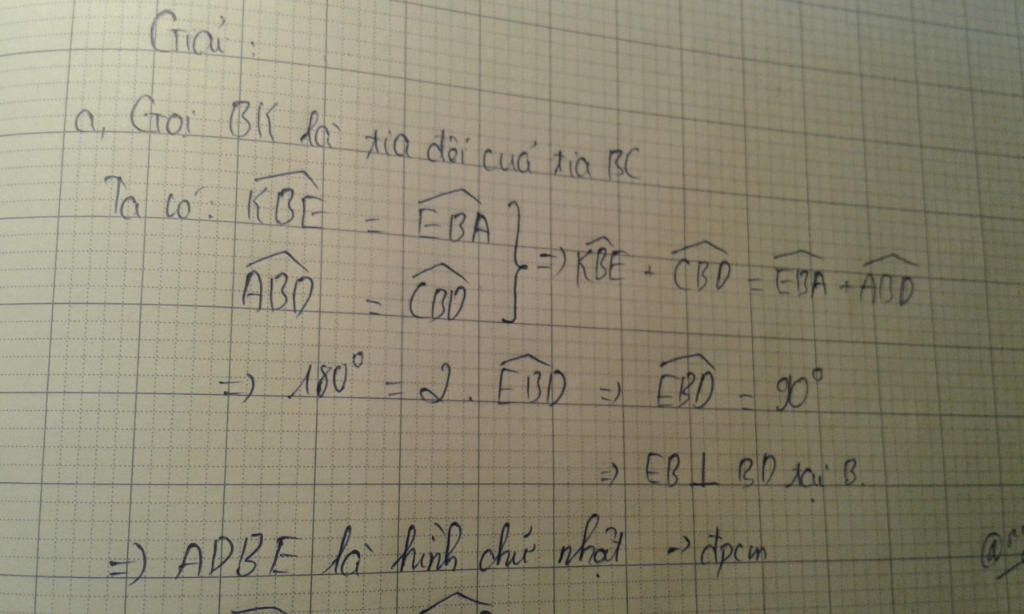 Giải:
a, Gọi BK là tia đối của tia BC
Ta có: KBE = EBA } => KBE + CBD = EBA + ABD
ABD = CBD
=> 180° = 2. EBD => EBD = 90°
=> EB ⊥ BD tại B.
=> ADBE là hình chữ nhật -> đpcm